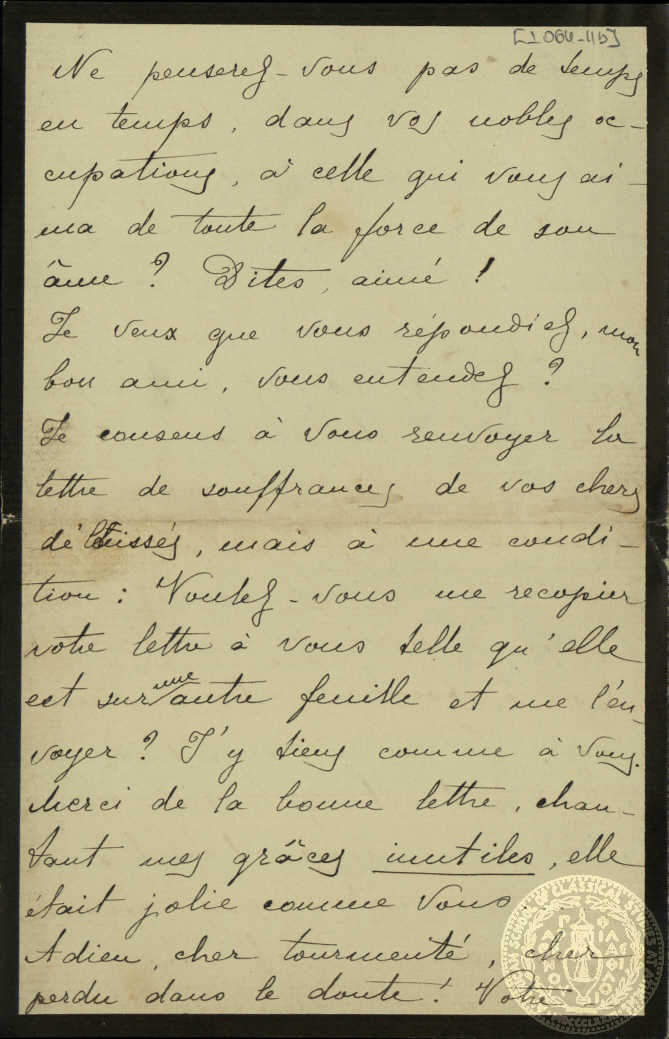 [1064-115]
Ne penserez-vous pas de temps
en temps, dans vos nobles oc-
cupations, à celle qui vous ai-
ma de toute la force de son
âme ? Dites, aimé !
Je veux que vous répondiez, mon
bon ami, vous entendez ?
Je consens à vous renvoyer la
lettre de souffrances de vos chers
délaissés, mais à une condi-
tion : Voulez-vous me recopier
votre lettre à vous telle qu'elle
est sur une autre feuille et me l'en-
voyer ? J'y tiens comme à vous.
Merci de la bonne lettre, chan-
tant mes grâces inutiles, elle
était jolie comme vous.
Adieu, cher tourmenté, cher
perdu dans le doute ! Votre